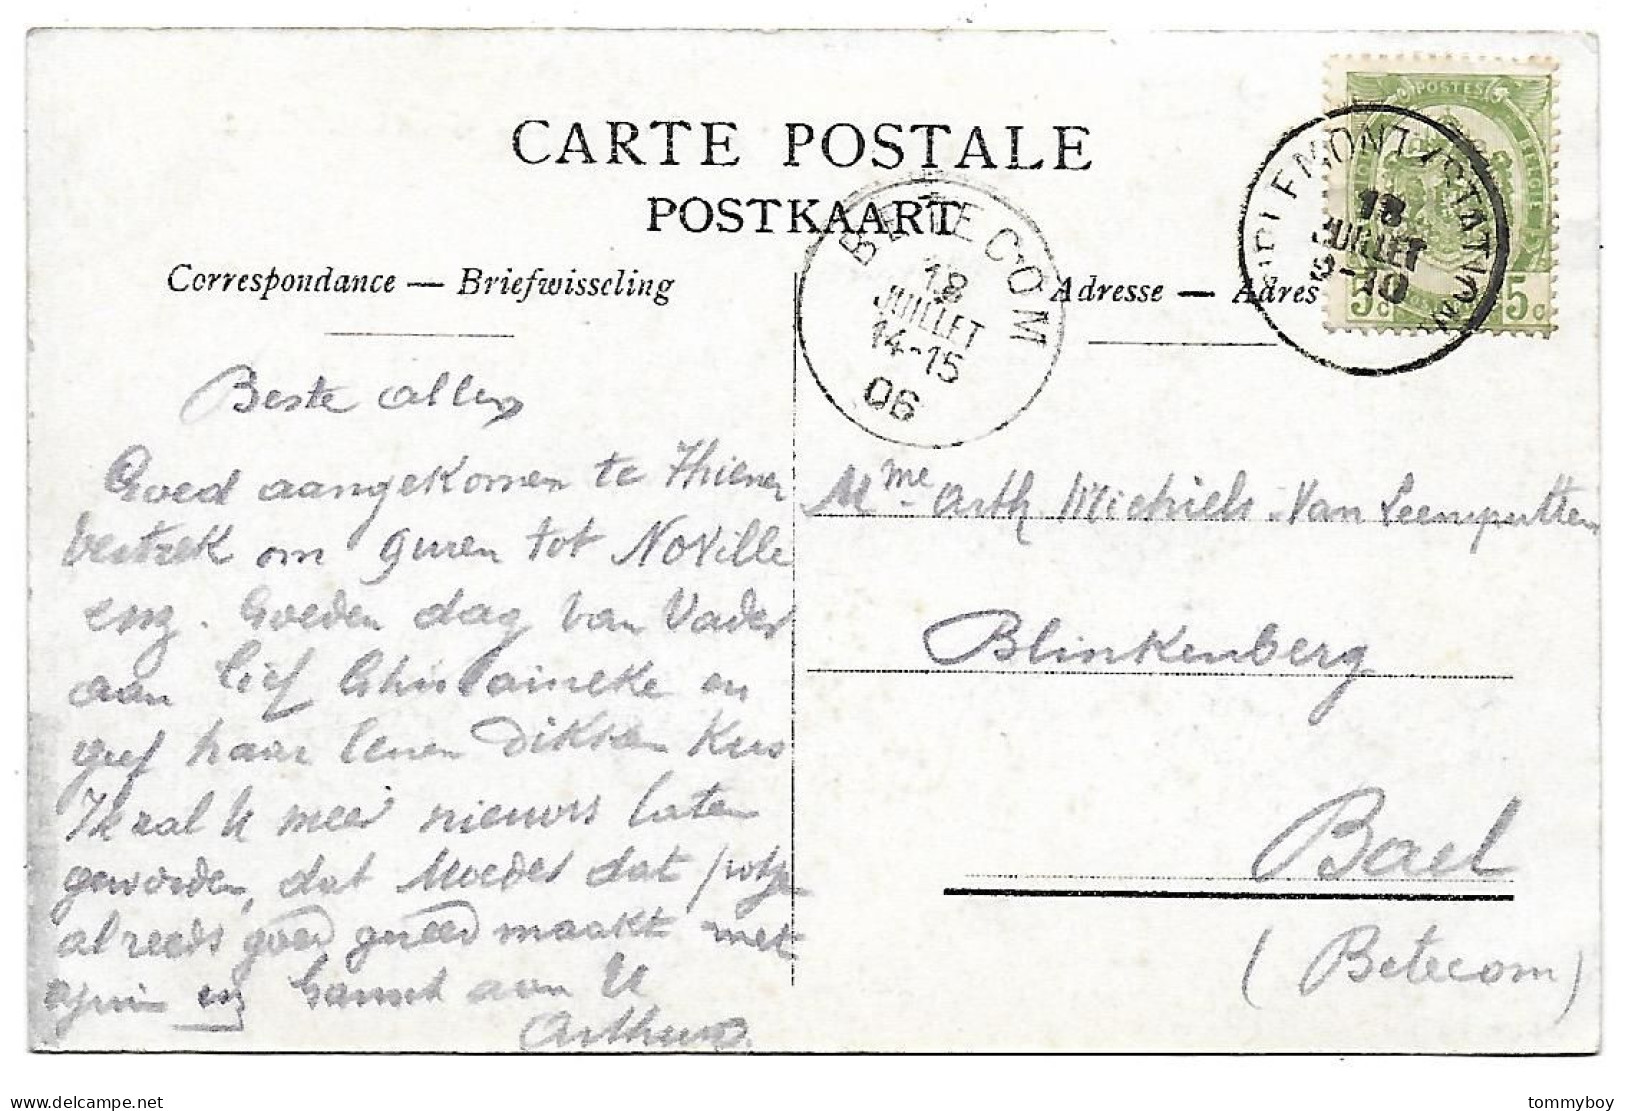 CARTE POSTALE
POSTKAART
Correspondance — Briefwisseling
Adresse — Adres
POSTES
5c 5c
TIRLEMONT (STATION)
18
JUILLET
9-10
BETECOM
18
JUILLET
14-15
06
Beste allen
Goed aangekomen te Thienen
vertrek om 9 uren tot Noville
enz. Goeden dag van Vader
aan lief Ghislaineke en
geef haar eenen dikken kus
Ik zal U meer nieuws laten
geworden, dat Moeder dat potje
alreeds goed gereed maakt met
ajuin enz Gansch aan U
Arthur
Mme Arth Michiels-Van Leemputten
Blinkenberg
Bael
(Betecom)
tommyboy